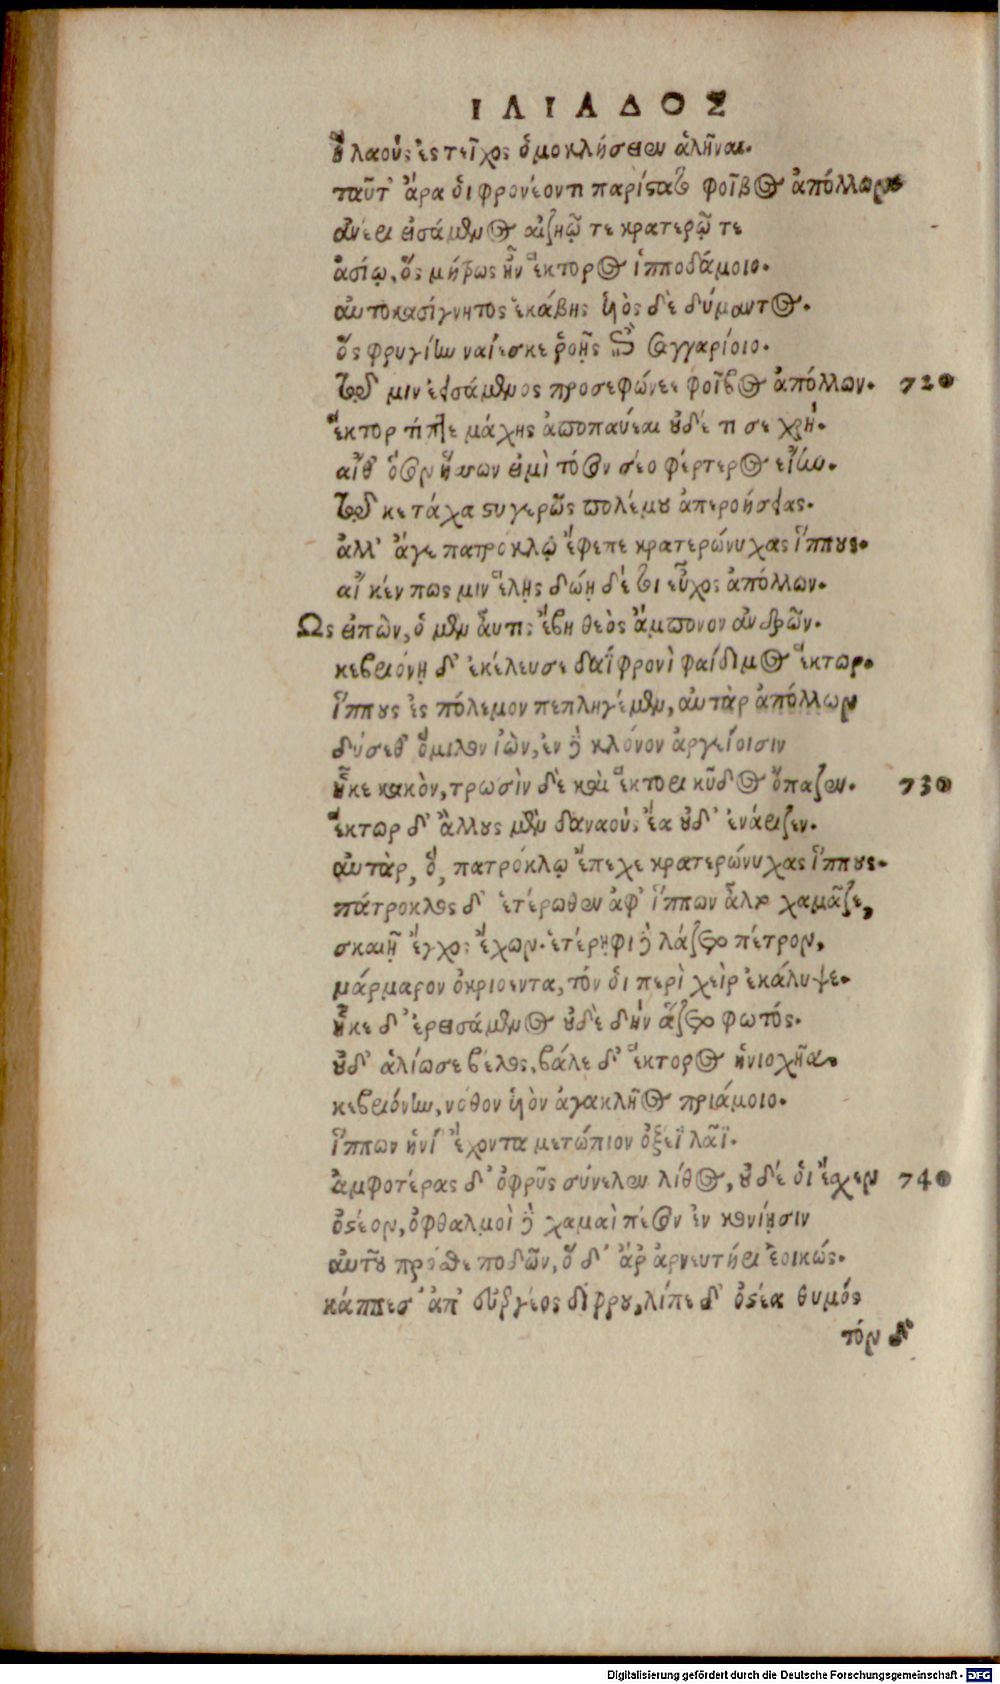 ΙΛΙΑΔΟΣ
ἢ λαοὺς ἐς τεῖχος ὁμοκλήσειεν ἀλῆναι.
ταῦτ' ἄρα ὁι φρονέοντι παρίστατο φοῖβος ἀπόλλων
ἀνέρι εἰσάμενος αἰζηῷ τε κρατερῷ τε
ἀσίῳ, ὅς μήτρως ἦν ἕκτορος ἱπποδάμοιο.
αὐτοκασίγνητος ἑκάβης υἱὸς δὲ δύμαντος.
ὅς φρυγίην ναίεσκε ῥοῇς ἔπι σαγγαρίοιο.
τῷ μιν ἐεισάμενος προσεφώνεε φοῖβος ἀπόλλων. 720
ἕκτορ τίπτε μάχης ἀποπαύεαι οὐδέ τι σε χρή.
αἴθ' ὅσον ἥσσων εἰμὶ τόσον σέο φέρτερος εἴην.
τῷ κε τάχα στυγερῶς πολέμου ἀπερωήσειας.
ἀλλ' ἄγε πατρόκλῳ ἔφεπε κρατερώνυχας ἵππους.
αἴ κέν πως μιν ἕλῃς δώῃ δέ τοι εὖχος ἀπόλλων.
Ως εἰπὼν, ὁ μὲν αὖτις ἔβη θεὸς ἄμπονον ἀνδρῶν.
κεβριόνῃ δ' ἐκέλευσε δαΐφρονὶ φαίδιμος ἕκτωρ.
ἵππους ἐς πόλεμον πεπληγέμεν, αὐτὰρ ἀπόλλων
δύσεθ' ὅμιλον ἰὼν, ἐν δὲ κλόνον ἀργείοισιν
ἧκε κακὸν, τρωσὶν δὲ καὶ ἕκτορι κῦδος ὄπαζεν. 730
ἕκτωρ δ' ἄλλους μὲν δαναοὺς ἔα οὐδ' ἐνάριζεν.
αὐτὰρ, ὅ, πατρόκλῳ ἔπεχε κρατερώνυχας ἵππους.
πάτροκλος δ' ἑτέρωθεν ἀφ' ἵππων ἆλτο χαμᾶζε,
σκαιῇ ἔγχος ἔχων. ἑτέρηφι δὲ λάζετο πέτρον,
μάρμαρον ὀκριοεντα, τόν ὁι περὶ χεὶρ ἐκάλυψε.
ἧκε δ' ἐρεισάμενος οὐδὲ δὴν ἅζετο φωτός.
οὐδ' ἁλίωσε βέλος, βάλε δ' ἕκτορος ἡνιοχῆα.
κεβριόνην, νόθον υἱὸν ἀγακλῆος πριάμοιο.
ἵππων ἡνί' ἔχοντα μετώπιον ὀξέϊ λᾶϊ.
ἀμφοτέρας δ' ὀφρῦς σύνελεν λίθος, οὐδέ ὁι ἔσχεν 740
ὀστέον, ὀφθαλμοὶ δὲ χαμαὶ πέσον ἐν κονίῃσιν
αὐτοῦ πρόσθε ποδῶν, ὅ δ' ἄρ' ἀρνευτῆρι ἐοικώς.
κάππεσ' ἀπ' εὐεργέος δίφρου, λίπε δ' ὀστέα θυμός
τόν δ'
Digitalisierung gefördert durch die Deutsche Forschungsgemeinschaft - DFG